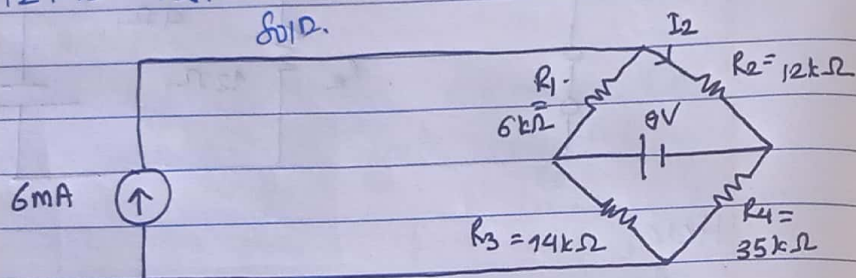 SOlD.
I2
R1 =
6kΩ
R2 = 12kΩ
9V
6mA
R3 = 14kΩ
R4 =
35kΩ